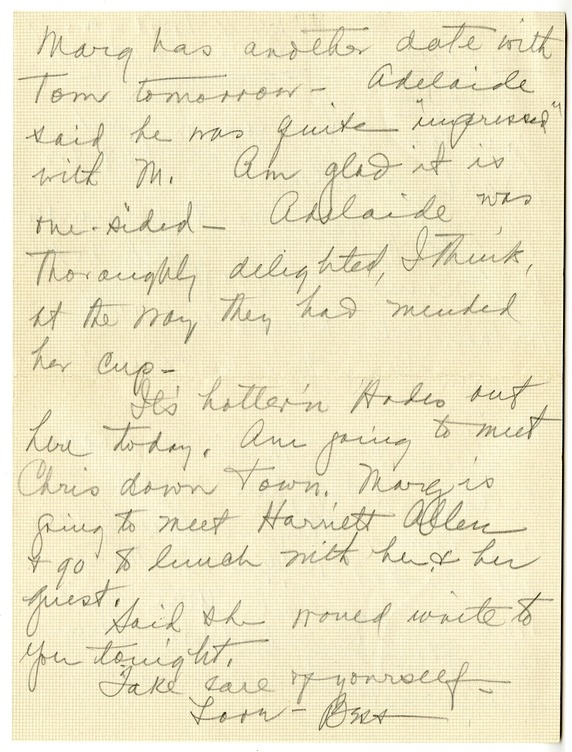 Marg has another date with
Tom tomorrow - Adelaide
said he was quite "impressed"
with M. Am glad it is
one-sided - Adelaide was
thoroughly delighted, I think,
at the way they had mended
her cup -
It's hotter'n Hades out
here today. Am going to meet
Chris down Town. Marg is
going to meet Harriett Allen
& go to lunch with her & her
guest.
Said she would write to
you tonight.
Take care of yourself -
Love - Bess